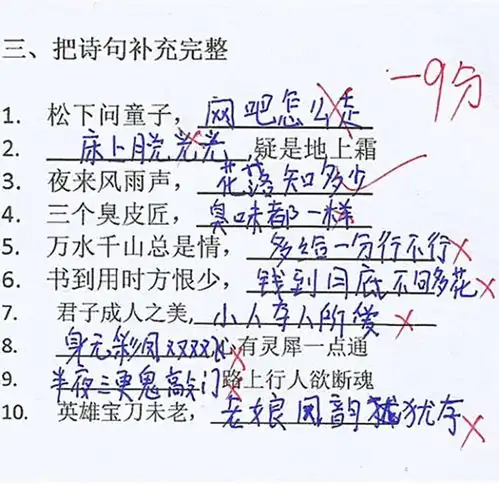 三、把诗句补充完整
-9分
1. 松下问童子，网吧怎么走
2. 床上脱光光,疑是地上霜
3. 夜来风雨声，花落知多少
4. 三个臭皮匠，臭味都一样
5. 万水千山总是情，多给一分行不行
6. 书到用时方恨少，钱到月底不够花
7. 君子成人之美,小人夺人所爱
8. 身无彩凤双双飞心有灵犀一点通
9. 半夜三更鬼敲门路上行人欲断魂
10. 英雄宝刀未老，老娘风韵犹存